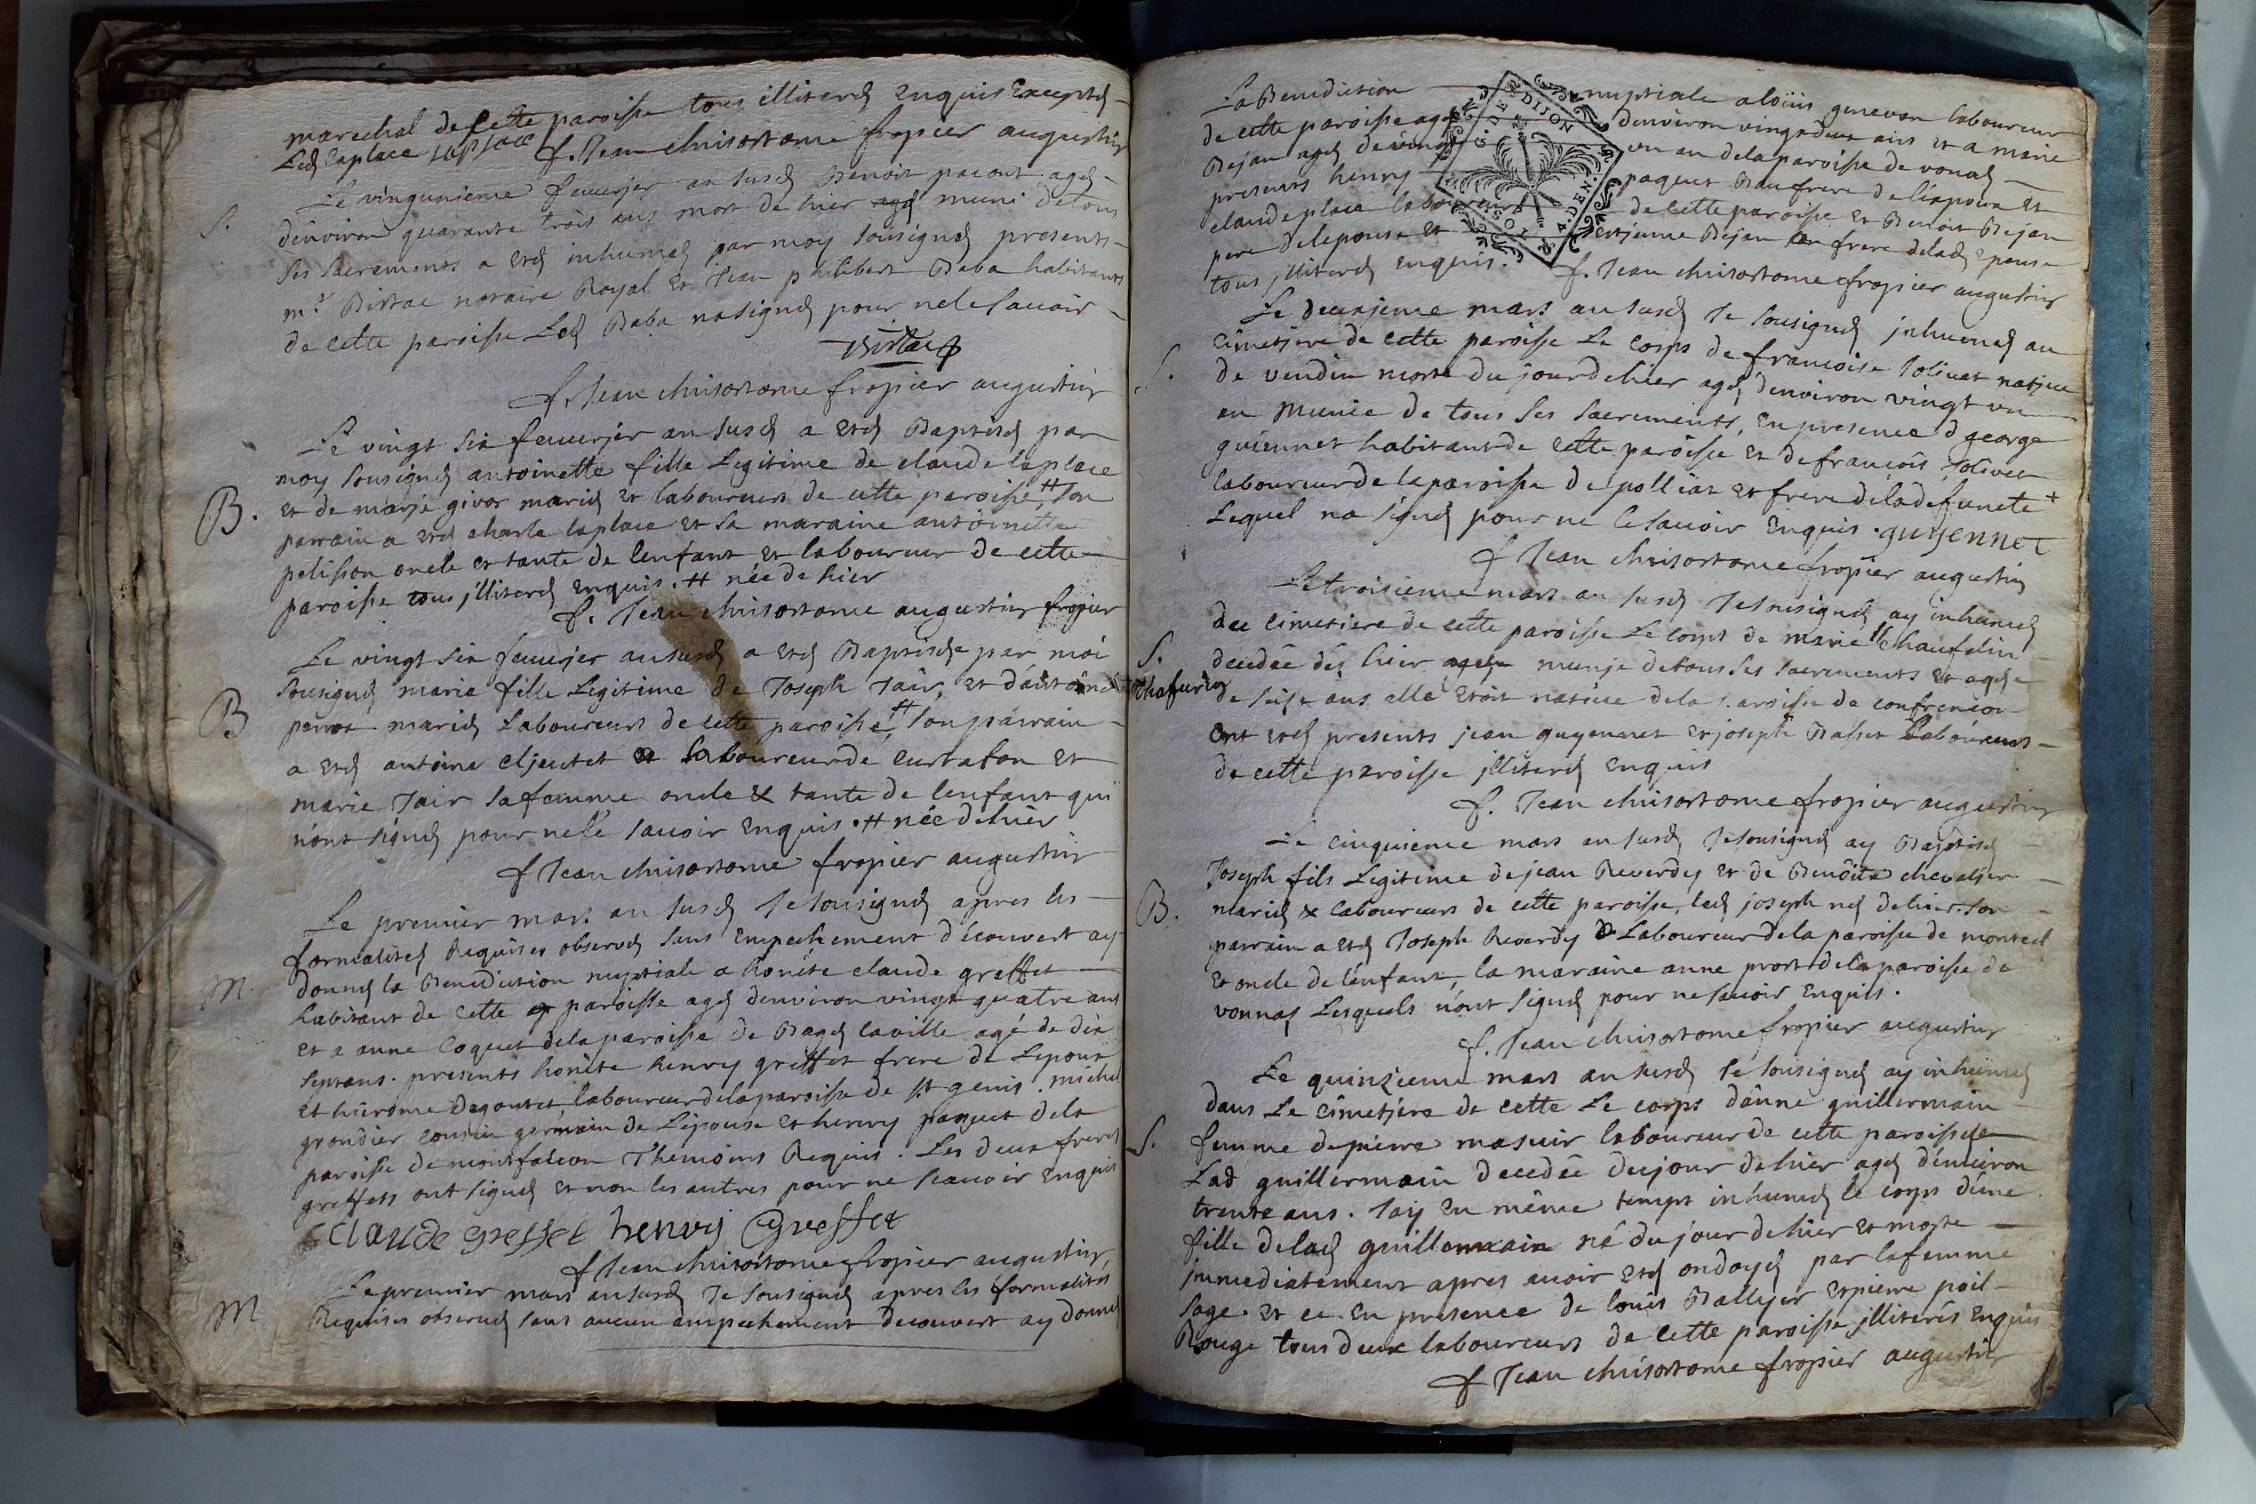 marechal de cette paroisse tous illiteré enquis Excepté
Led laplace laplace f. Jean chrisostome fropier augustin
S. Le vingunieme feuurjer an susd Benoit paront agé
denviron quarante trois ans mort de hier agé muni de tous
ses sacrements a eté inhumé par moy sousigné presents
mr Birtac notaire Royal et Jean philibert Baba habitants
de cette paroisse Led Baba na signé pour ne le sauoir
f. Jean chrisostome fropier augustin
Le vingt six feuurjer an susd a eté Baptisé par
moy sousigné antoinette fille Legitime de claude laplace
B. et de marje givor marié et laboureurs de cette paroisse # son
parrain a eté charle laplace et sa maraine antoinette
pelisson oncle et tante de lenfant et laboureur de cette
paroisse tous jlliteré enquis. # née de hier
f. Jean chrisostome augustin fropier
Le vingt six feuurjer an susd a eté Baptisée par moi
sousigné marie fille Legitime de Joseph Jair, et d'antoinette
B perrot marié Laboureurs de cette paroisse # son parrain
a eté antoine eljeutet laboureur de curtafon et
marie Jair sa femme oncle & tante de lenfant qui
n'ont signé pour ne le sauoir enquis. # née de hier
f Jean chrisostome fropier augustin
Le premier mars an susd Je sousigné apres les
formalités Requises observé sans empechement découvert ay
M. donné la Benediction nuptiale a honéte claude greffet
habitant de cette paroisse agé denviron vingt quatre ans
et a anne Coquet dela paroisse de Bagé laville agé de dix
septans. presents honéte henry greffet frere de Lepoux
et hierome degoutet laboureur dela paroisse de st genis. michel
grondier cousin germain de L'épouse et henry paquet dela
paroisse de montfalcon Themoins Requis. Les deux freres
greffets ont signé et non les autres pour ne scauoir enquis
Claude greffet henry Greffet
f Jean chrisostome fropier augustin
M Le premier mars an susd Je sousigné apres les formalités
Requises observé sans aucun ampechement decouvert ay donné
La Benediction nuptiale a loüis genevon laboureur
de cette paroisse agé denviron vingt deux ans et a marie
Dejan agé de vingt un an dela paroisse de vonas
presents henry paquet Beaufrere de l'époux et
claude place laboureur de cette paroisse et Benoit Dejan
pere de lepouse et et jeune Dejan frere delad epouse
tous jlliteré enquis. f. Jean chrisostome fropier augustin
G. DE DIJON
4. DEN.
Le deuxjeme mars an susd Je sousigné jnhumé au
cimetjere de cette paroisse Le corps de francoise Joliuet natjue
S. de vendin morte du jour de hier agé denviron vingt un
an munie de tous ses sacrements, en presence d george
guiennet habitant de cette paroisse et de françois Joliuet
laboureur de la paroisse de polliat et frere de la defuncte +
Lequel na signé pour ne le sauoir enquis. guyennet
f Jean chrisostome fropier augustin
Le troisieme mars an susd Je sousigné ay inhumé
au cimetiere de cette paroisse Le corps de marie
S. decedée dés hier munje de tous ses sacrements et agée
de seise ans elle etoit natiue dela paroisse de confrencon
ont eté presents jean guyennet et joseph Basset laboureurs
de cette paroisse jlliteré enquis
f. Jean chrisostome fropier augustin
Le cinquieme mars an susd Je sousigné ay Baptisé
Joseph fils Legitime de jean Reverdy et de Benoite chevalier
B. marié & laboureurs de cette paroisse, led joseph né de hier. son
parrain a eté Joseph Reverdy Laboureur dela paroisse de montcel
et oncle de l'enfant, la maraine anne prost dela paroisse de
vonnas Lesquels n'ont signé pour ne sauoir enquis.
f. Jean chrisostome fropier augustin
Le quinzieme mars an susd Je sousigné ay inhumé
dans Le cimetjere de cette Le corps d'anne guillermain
S. femme de pierre masuir laboureur de cette paroisse
Lad guillermain decedée du jour de hier agé d'enuiron
trente ans. Jay en même temps inhumé le corps d'une
fille delad guillermain né du jour de hier et morte
jmmediatement apres auoir eté ondoyé par la femme
sage. et ce en presence de loüis Ballyer et pierre poil
Rouge tous deux laboureurs de cette paroisse jlliterés enquis
f Jean chrisostome fropier augustin